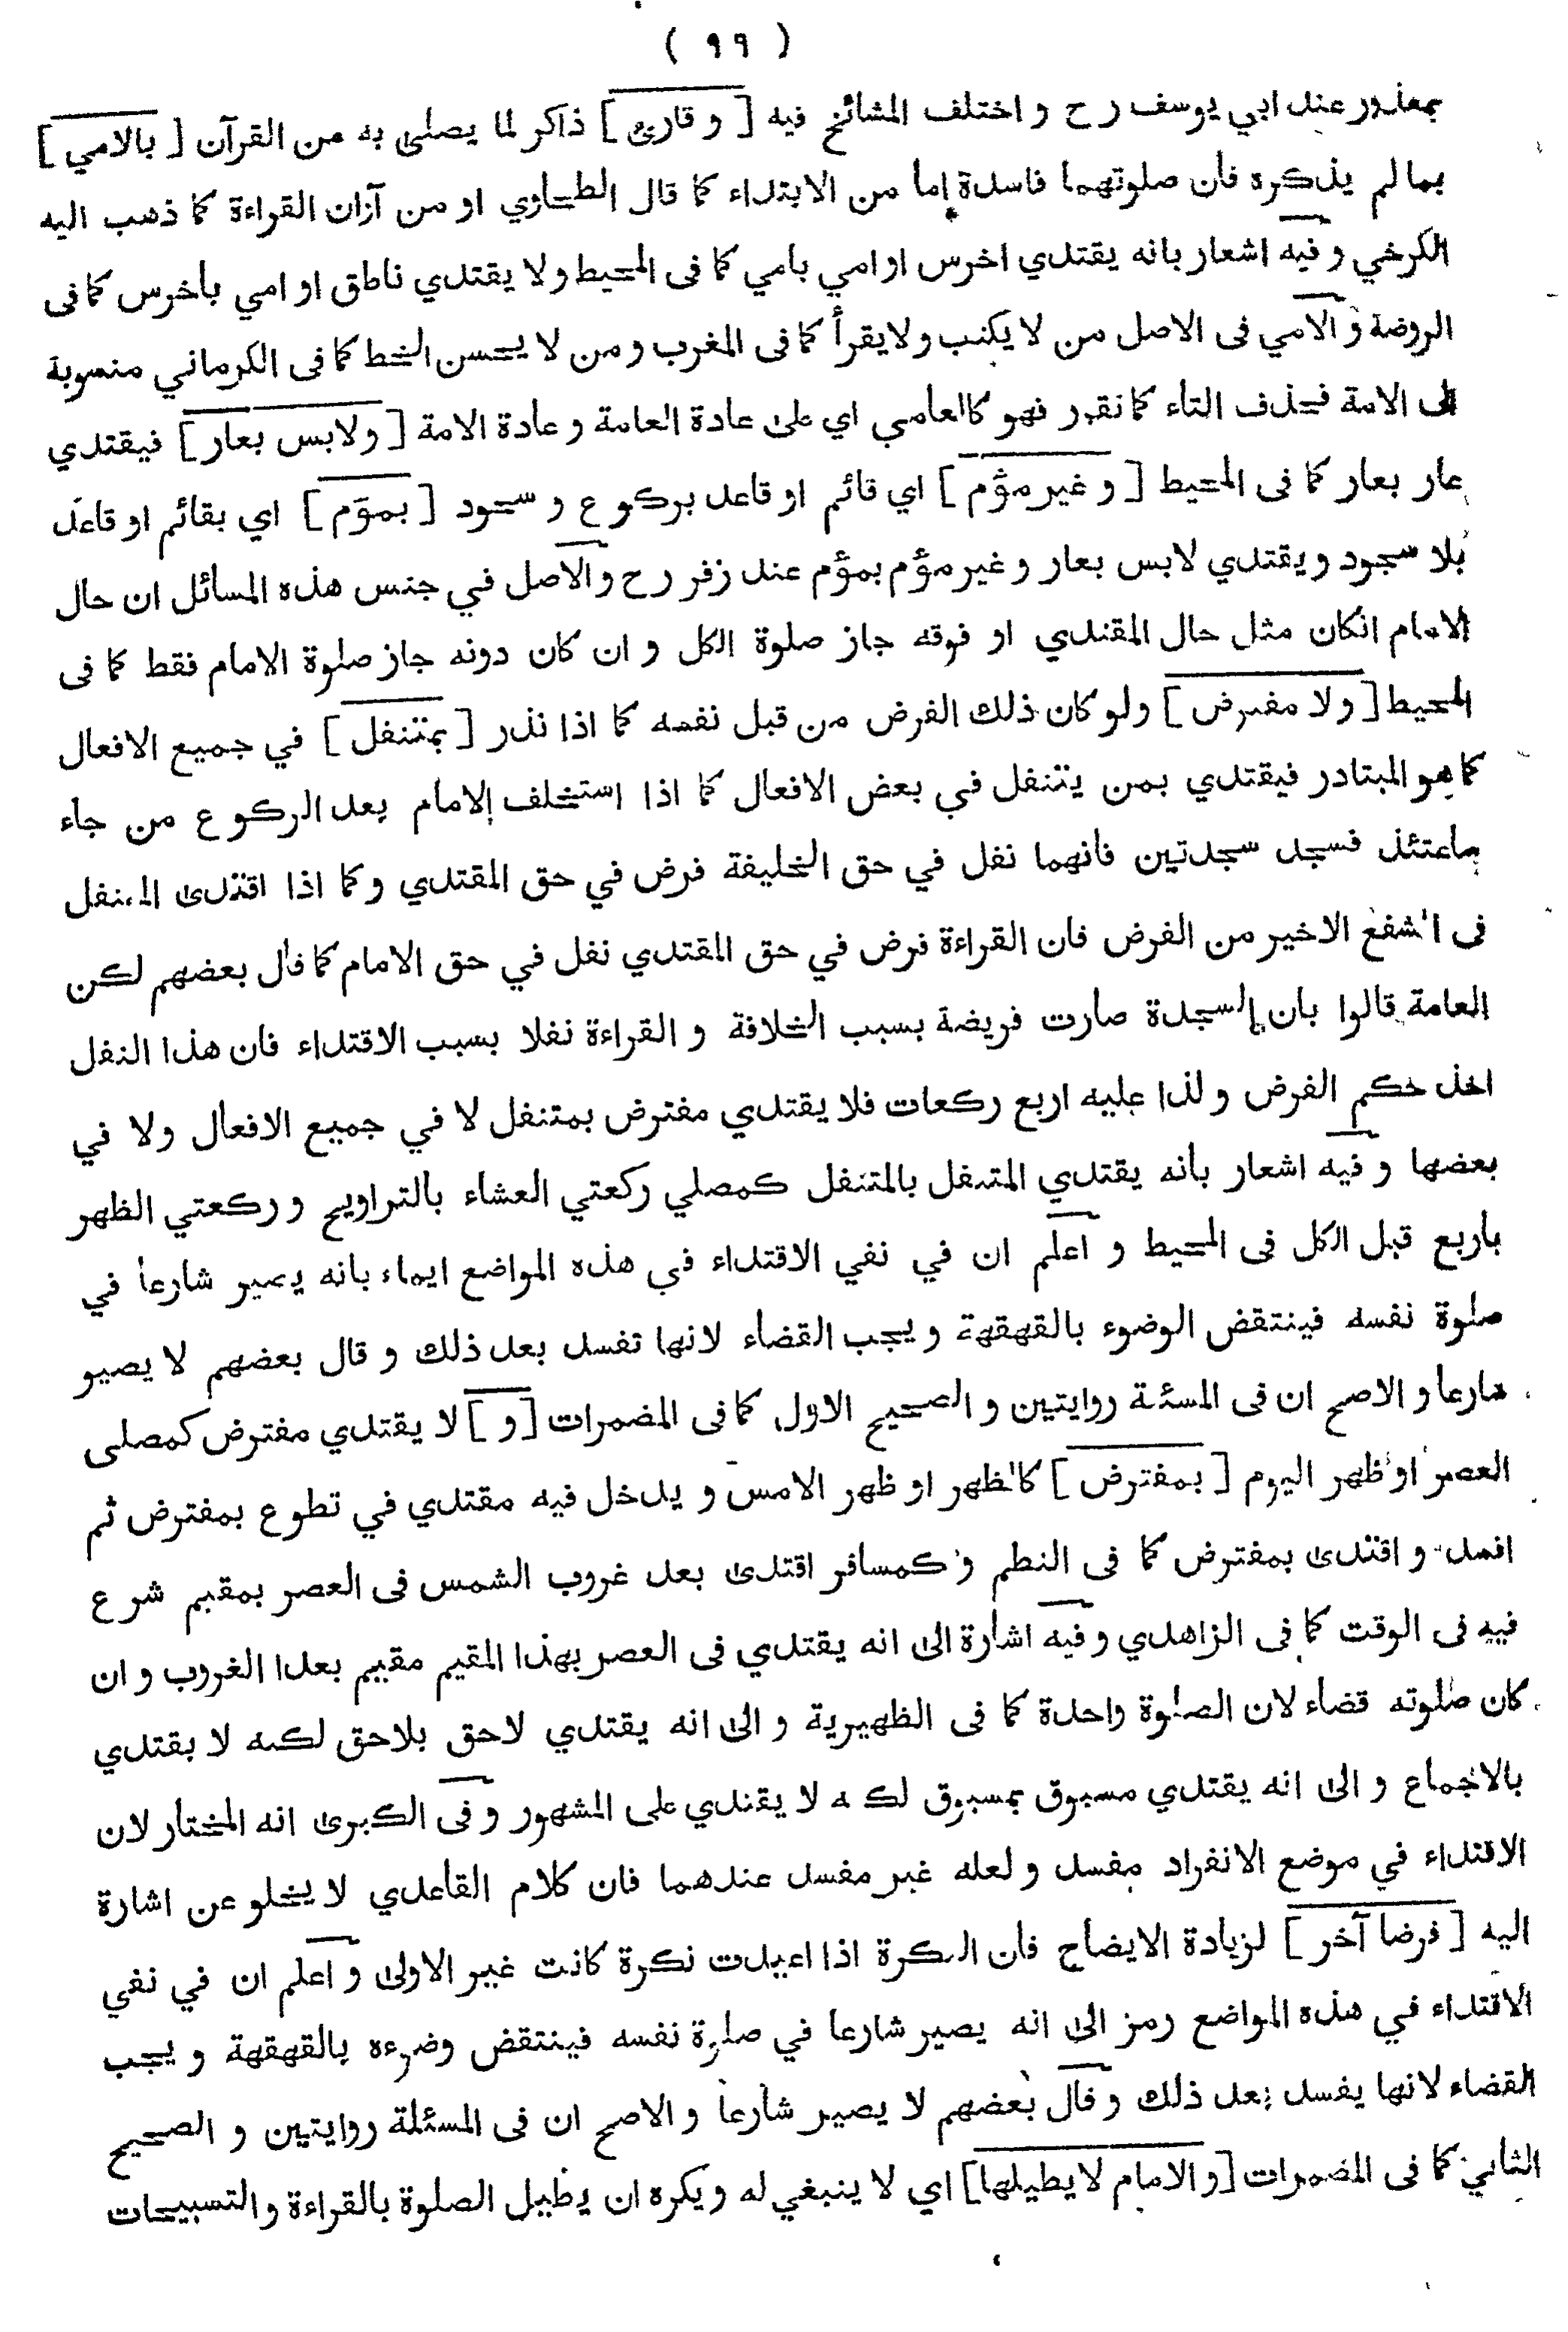 ( ٩٩ )
بمعذور عند ابي يوسف رح و اختلف المشائخ فيه [ و قارئ ] ذاكر لما يصلى به من القرآن [ بالامي ]
بما لم يذكره فان صلوتهما فاسدة اما من الابتداء كما قال الطحاوي او من آزان القراءة كما ذهب اليه
الكرخي و فيه اشعار بانه يقتدي اخرس او امي بامي كما فى المحيط ولا يقتدي ناطق او امي بأخرس كما فى
الروضة و الامي فى الاصل من لا يكتب ولايقرأ كما فى المغرب و من لا يحسن الخط كما فى الكرماني منسوبة
الى الامة فحذف التاء كما تقرر فهو كالعامي اي على عادة العامة و عادة الامة [ ولابس بعار ] فيقتدي
عار بعار كما فى المحيط [ و غير مؤم ] اي قائم او قاعد بركوع و سجود [ بمؤم ] اي بقائم او قاعد
بلا سجود و يقتدي لابس بعار و غير مؤم بمؤم عند زفر رح و الاصل في جنس هذه المسائل ان حال
الامام انكان مثل حال المقتدي او فوقه جاز صلوة الكل و ان كان دونه جاز صلوة الامام فقط كما فى
المحيط [ ولا مفترض ] ولو كان ذلك الفرض من قبل نفسه كما اذا نذر [ بمتنفل ] في جميع الافعال
كما هو المبتادر فيقتدي بمن يتنفل في بعض الافعال كما اذا استخلف الامام بعد الركوع من جاء
ساعتئذ فسجد سجدتين فانهما نفل في حق الخليفة فرض في حق المقتدي و كما اذا اقتدى المتنفل
فى الشفع الاخير من الفرض فان القراءة فرض في حق المقتدي نفل في حق الامام كما قال بعضهم لكن
العامة قالوا بان السجدة صارت فريضة بسبب الخلافة و القراءة نفلا بسبب الاقتداء فان هذا النفل
اخذ حكم الفرض و لذا عليه اربع ركعات فلا يقتدي مفترض بمتنفل لا في جميع الافعال ولا في
بعضها و فيه اشعار بأنه يقتدي المتنفل بالمتنفل كمصلي ركعتي العشاء بالتراويح و ركعتي الظهر
بأربع قبل الكل فى المحيط و اعلم ان في نفي الاقتداء في هذه المواضع ايماء بانه يصير شارعا في
صلوة نفسه فينتقض الوضوء بالقهقهة و يجب القضاء لانها تفسد بعد ذلك و قال بعضهم لا يصير
شارعا و الاصح ان فى المسئة روايتين و الصحيح الاول كما فى المضمرات [ و ] لا يقتدي مفترض كمصلى
العصر او ظهر اليوم [ بمفترض ] كالظهر او ظهر الامس و يدخل فيه مقتدي في تطوع بمفترض ثم
افسد و اقتدى بمفترض كما فى النظم و كمسافر اقتدى بعد غروب الشمس فى العصر بمقيم شرع
فيه فى الوقت كما فى الزاهدي و فيه اشارة الى انه يقتدي فى العصر بهذا المقيم مقيم بعدا الغروب و ان
كان صلوته قضاء لان الصلوة واحدة كما فى الظهيرية و الى انه يقتدي لاحق بلاحق لكنه لا يقتدي
بالاجماع و الى انه يقتدي مسبوق بمسبوق لكنه لا يقتدي على المشهور و فى الكبرى انه المختار لان
الاقتداء في موضع الانفراد مفسد و لعله غير مفسد عندهما فان كلام القاعدي لا يخلو عن اشارة
اليه [ فرضا آخر ] لزيادة الايضاح فان النكرة اذا اعيدت نكرة كانت غير الاولى و اعلم ان في نفي
الاقتداء في هذه المواضع رمز الى انه يصير شارعا في صلوة نفسه فينتقض وضوءه بالقهقهة و يجب
القضاء لانها يفسد بعد ذلك و قال بعضهم لا يصير شارعا و الاصح ان فى المسئلة روايتين و الصحيح
الثاني كما فى المضمرات [ و الامام لا يطيلها ] اي لا ينبغي له و يكره ان يطيل الصلوة بالقراءة و التسبيحات